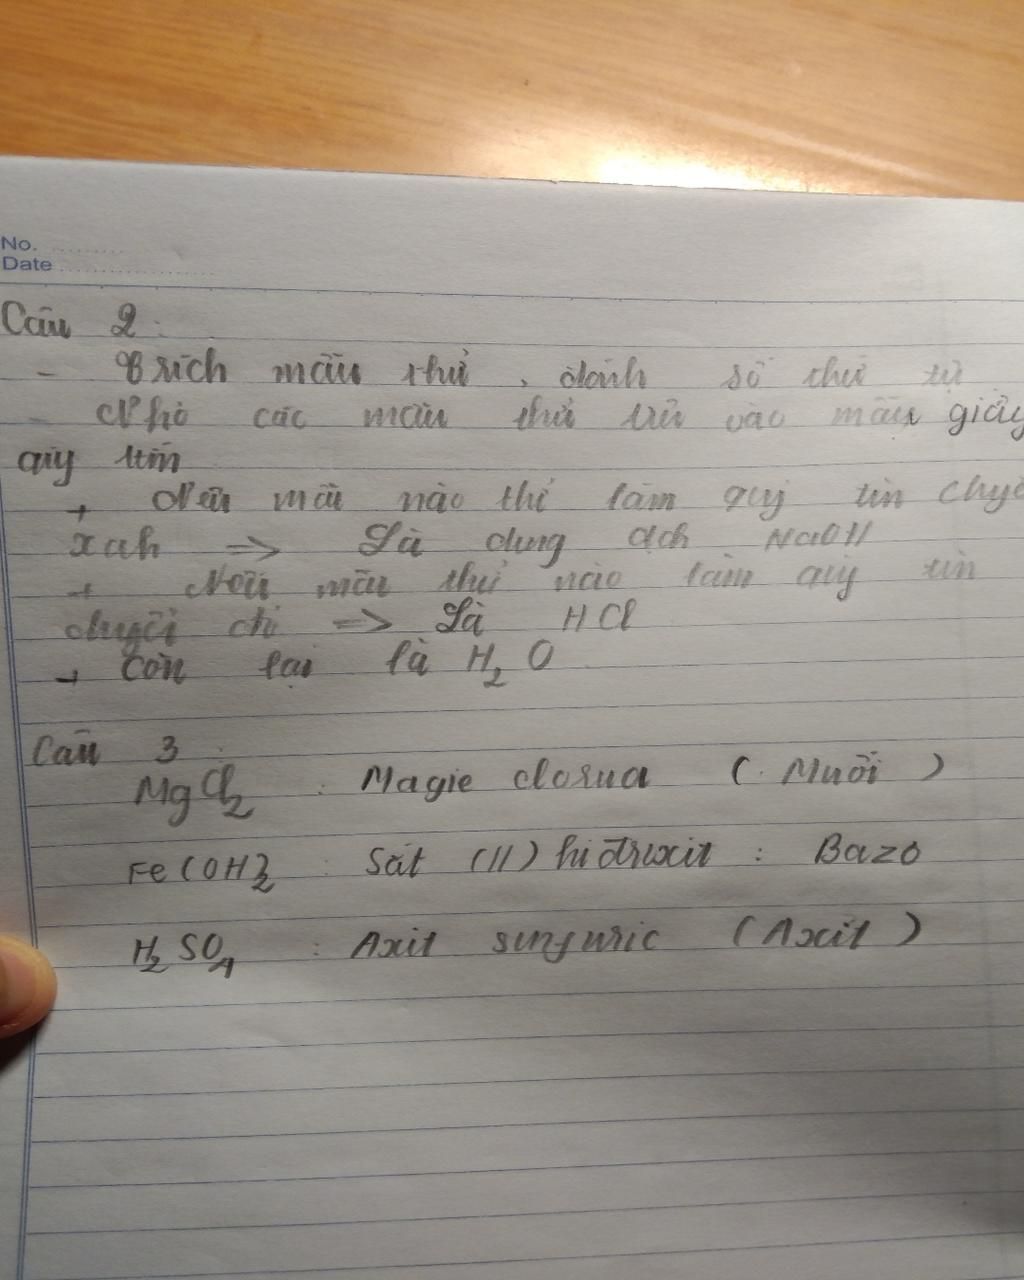 No. ..........
Date ......................
Câu 2:
- Trích mẫu thử, đánh số thứ tự
- Nhỏ các mẫu thử trừ vào mẩu giấy
qùy tím
+ Nếu mẫu nào thử làm quỳ tín chyể
xah => Là dung dch NaOH
+ Nếu mẫu thử nào làm qùy tín
chyổi đỏ => Là HCl
+ Còn lại là H₂O
Câu 3:
MgCl₂ : Magie clorua (Muối)
Fe(OH)₂ : Sắt (II) hiđroxit : Bazo
H₂SO₄ : Axit sunfuric (Axit)